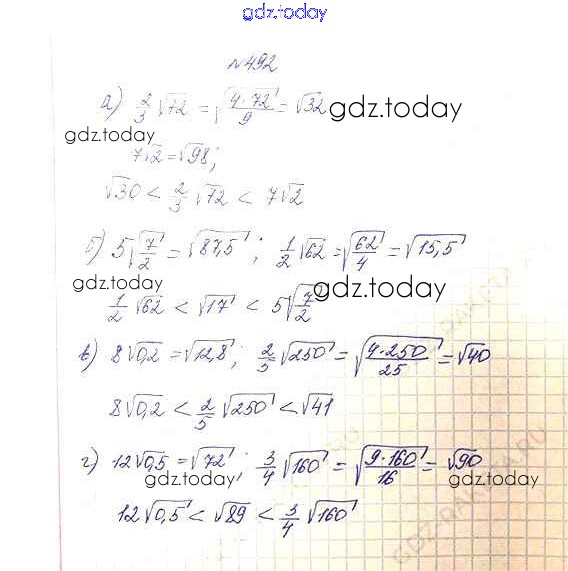 gdz.today
№492
а) 2/3 √72 = √(4·72/9) = √32
gdz.today
gdz.today
7√2 = √98;
√30 < 2/3 √72 < 7√2
б) 5√(7/2) = √87,5; 1/2 √62 = √(62/4) = √15,5
gdz.today
gdz.today
1/2 √62 < √17 < 5√(7/2)
в) 8√0,2 = √12,8; 2/5 √250 = √(4·250/25) = √40
8√0,2 < 2/5 √250 < √41
г) 12√0,5 = √72; 3/4 √160 = √(9·160/16) = √90
gdz.today
gdz.today
12√0,5 < √89 < 3/4 √160